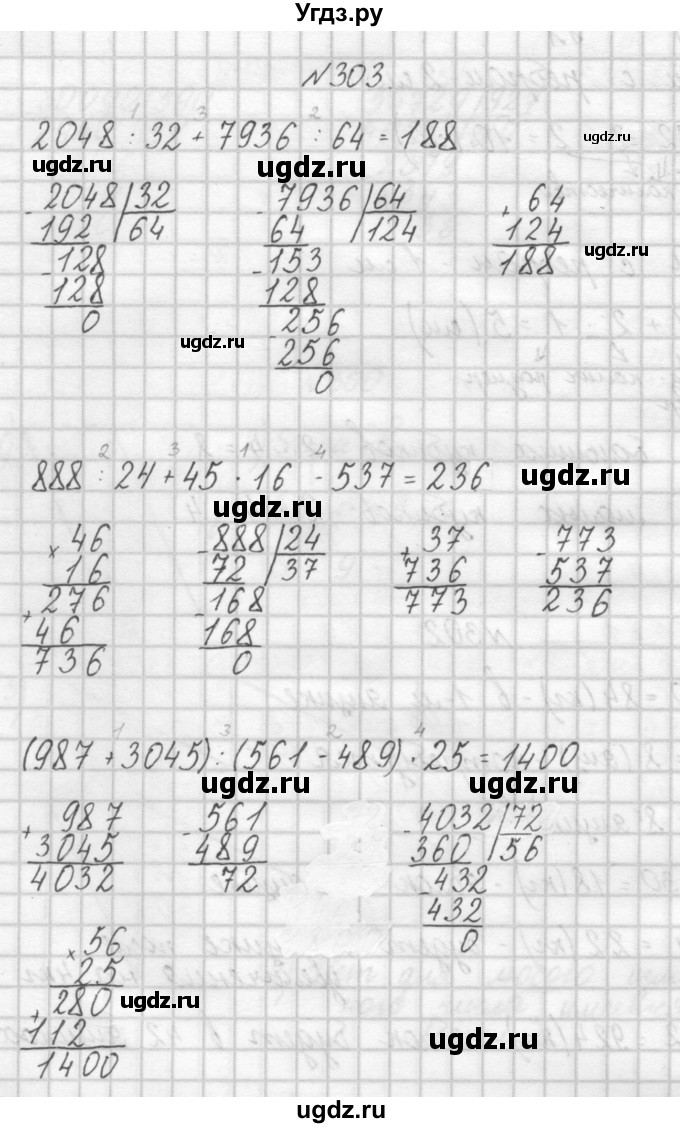 Угдз.ру
№303.
1 3 2
2048 : 32 + 7936 : 64 = 188
ugdz.ru
ugdz.ru ugdz.ru
- 2048 32 - 7936 64 + 64
192 64 64 124 124
- 128 - 153 188
ugdz.ru
128 128
0 - 256
ugdz.ru
256
0
2 3 1 4
888 : 24 + 45 · 16 - 537 = 236
ugdz.ru
ugdz.ru
× 46 - 888 24 + 37 - 773
16 72 37 736 537
276 - 168 773 236
+ 46 168
736 0
1 3 2 4
(987 + 3045) : (561 - 489) · 25 = 1400
ugdz.ru ugdz.ru
+ 987 - 561 - 4032 72
3045 489 360 56
4032 72 - 432
432
0
× 56
25
+ 280 ugdz.ru
112
ugdz.ru
1400
ugdz.ru